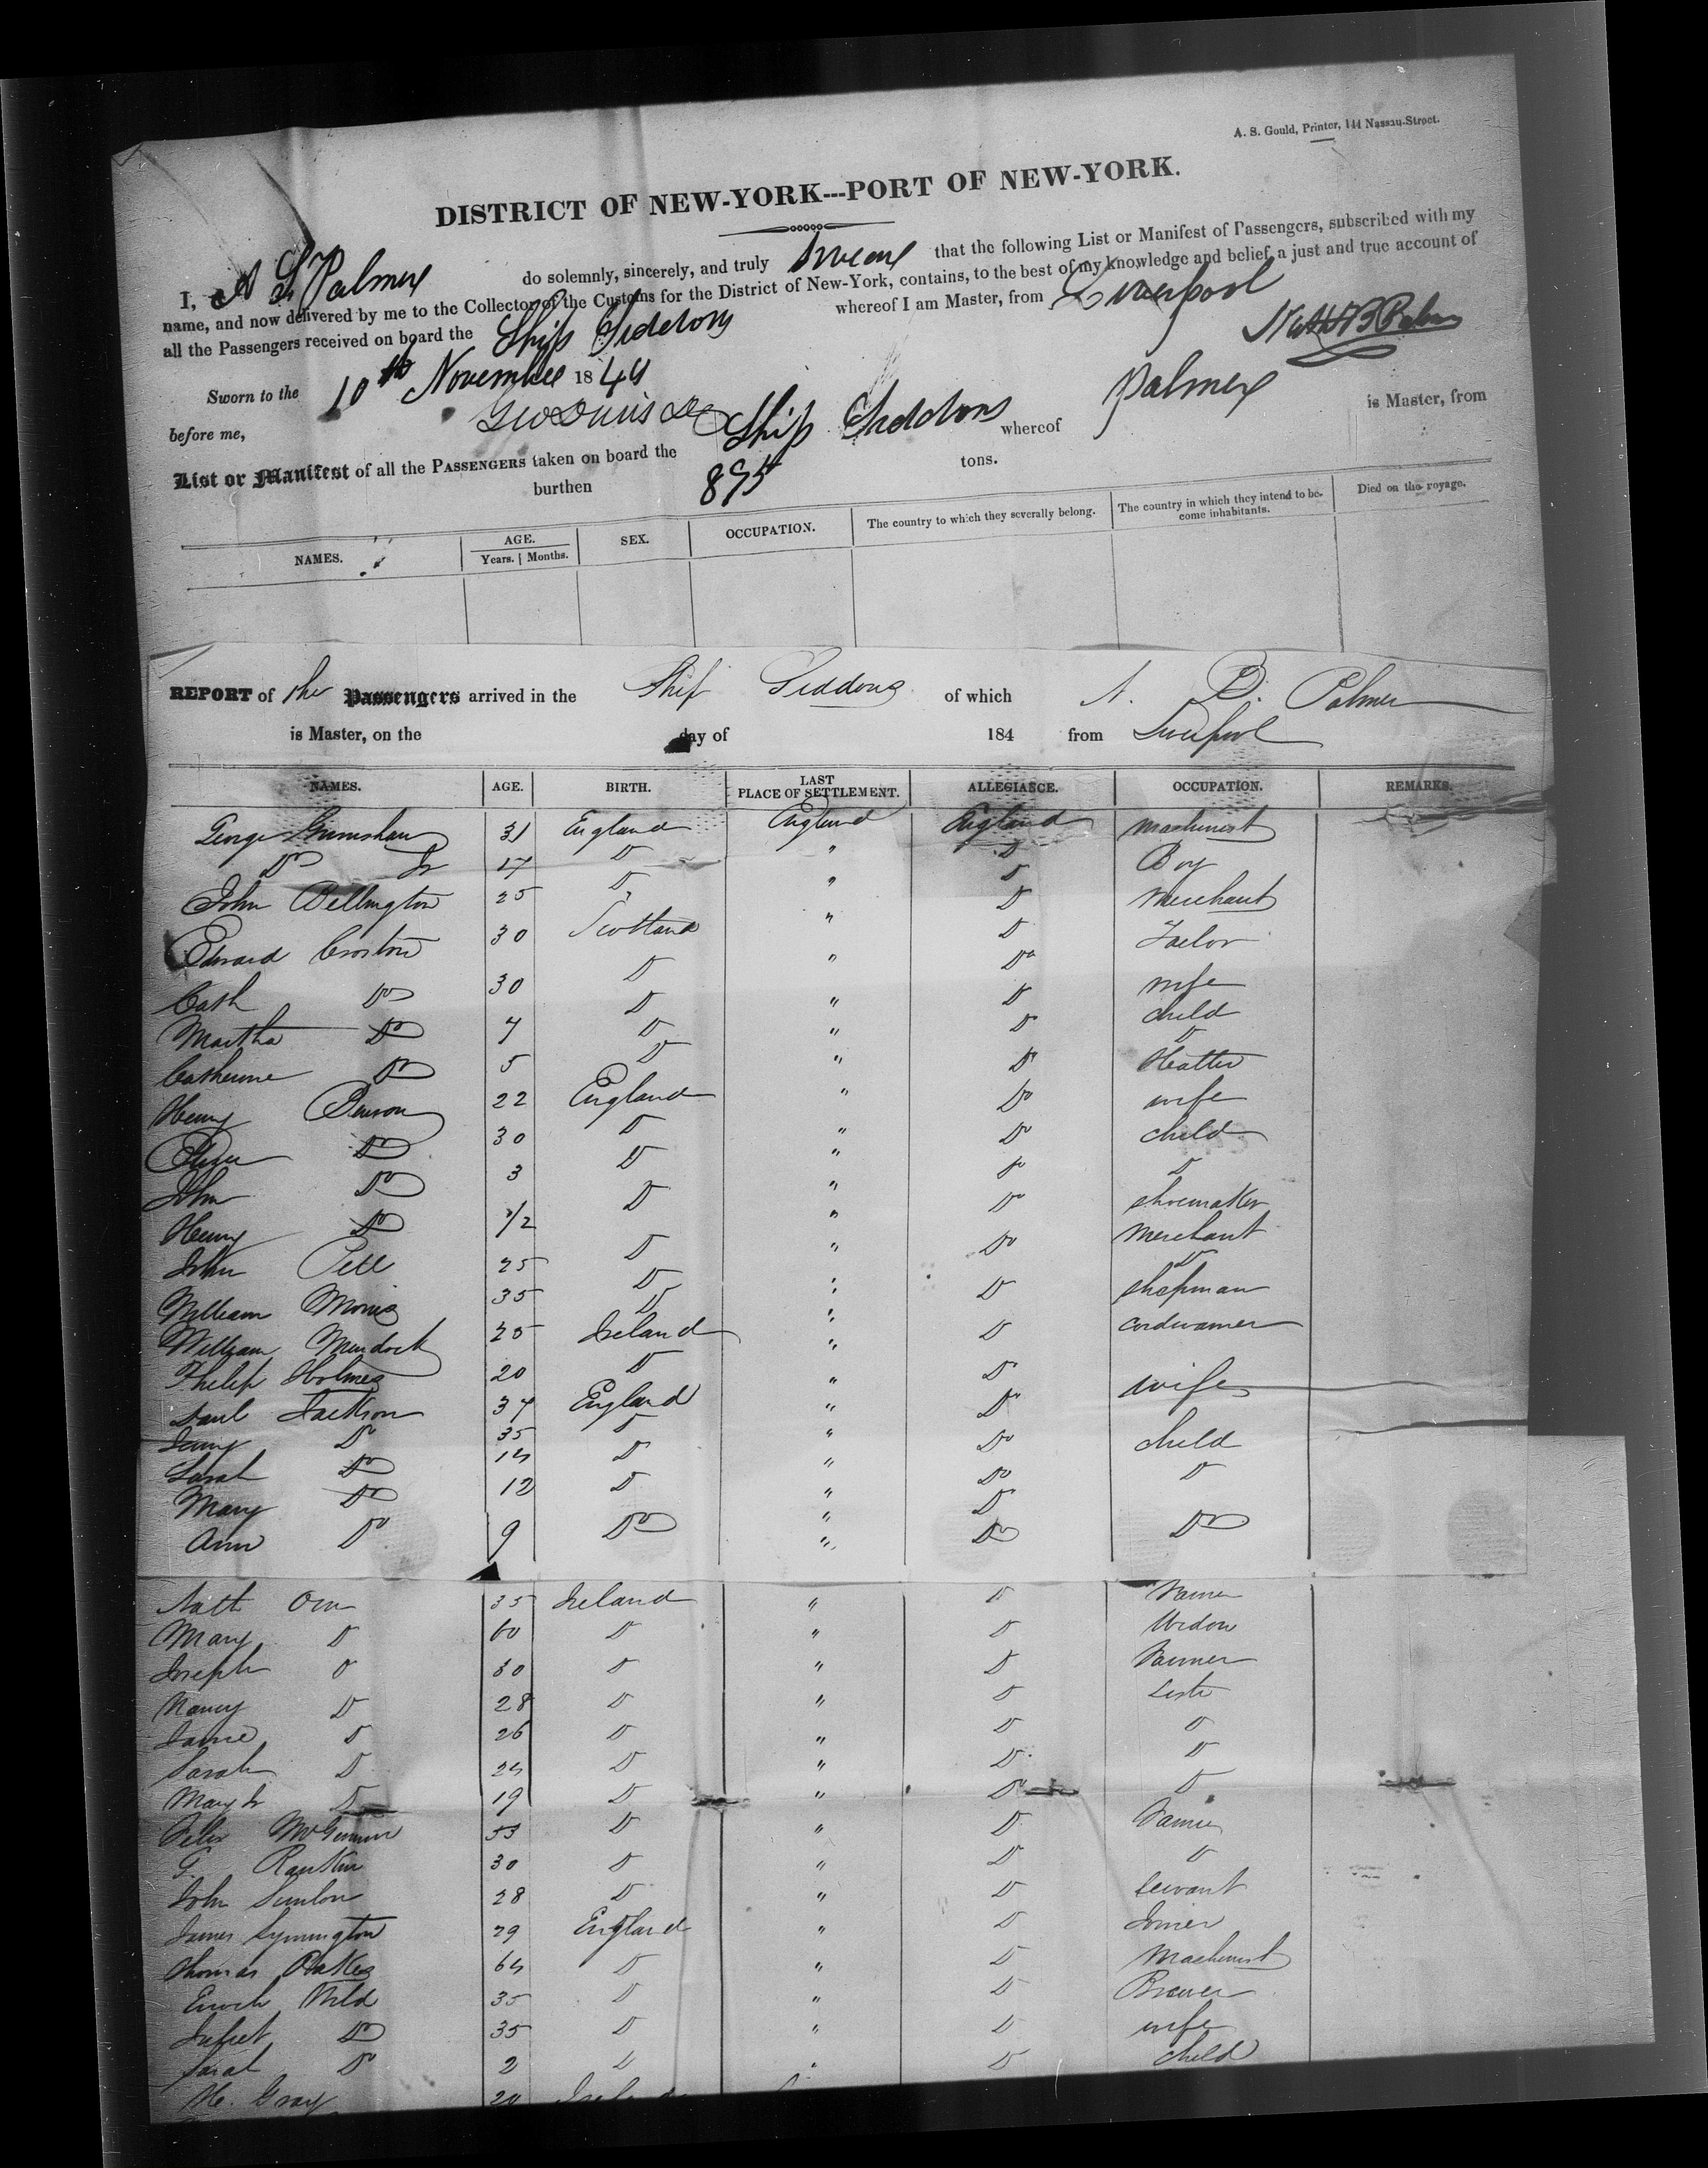 A. S. Gould, Printer, 144 Nassau-Street.
DISTRICT OF NEW-YORK---PORT OF NEW-YORK.
I, Palmer do solemnly, sincerely, and truly swear that the following List or Manifest of Passengers, subscribed with my
name, and now delivered by me to the Collector of the Customs for the District of New-York, contains, to the best of my knowledge and belief, a just and true account of
all the Passengers received on board the Ship Siddons whereof I am Master, from Liverpool
Sworn to the 10th November 1844
before me,
List or Manifest of all the PASSENGERS taken on board the Ship Siddons whereof Palmer is Master, from
burthen 895 tons.
NAMES. AGE. Years. | Months. SEX. OCCUPATION. The country to which they severally belong. The country in which they intend to become inhabitants. Died on the voyage.
REPORT of the Passengers arrived in the Ship Siddons of which N. B. Palmer
is Master, on the day of 184 from Liverpool
NAMES. AGE. BIRTH. LAST PLACE OF SETTLEMENT. ALLEGIANCE. OCCUPATION. REMARKS.
George Grimshaw 31 England England England Machinist
Do Jr 17 D " D Boy
John Bellington 25 D " D Merchant
Edward Croston 30 Scotland " D Tailor
Cath Do 30 D " Do wife
Martha Do 7 D " D child
Catherine Do 5 D " D D
Henry Benson 22 England " Do Hatter
Do 30 D " Do wife
John Do 3 D " Do child
Henry Do 1/2 D " Do D
John Pell 25 D " Do shoemaker
William Morris 35 D " D Merchant
William Murdock 25 Ireland " D
Philip Holmes 20 D " D shopman
Jackson 37 England " D cordwainer
Do 35 D " Do wife
Sarah Do 14 D " Do child
Mary Do 12 D " D D
Ann Do 9 Do " Do Do
Nath Orr 35 Ireland " D Farmer
Mary D 60 D " D Widow
Joseph D 30 D " D Farmer
Nancy D 28 D " D Sister
Jane D 26 D " D D
Sarah D 24 D " D D
Mary Jr D 19 D " D D
Felix 53 D " D Farmer
G. Rankin 30 D " D D
John 28 D " D servant
James Symington 29 England " D Joiner
Thomas Oakes 64 D " D Machinist
Enoch Wild 35 D " D Brewer
Do 35 D " D wife
Sarah Do 2 D " D child
Gray 20 Ireland